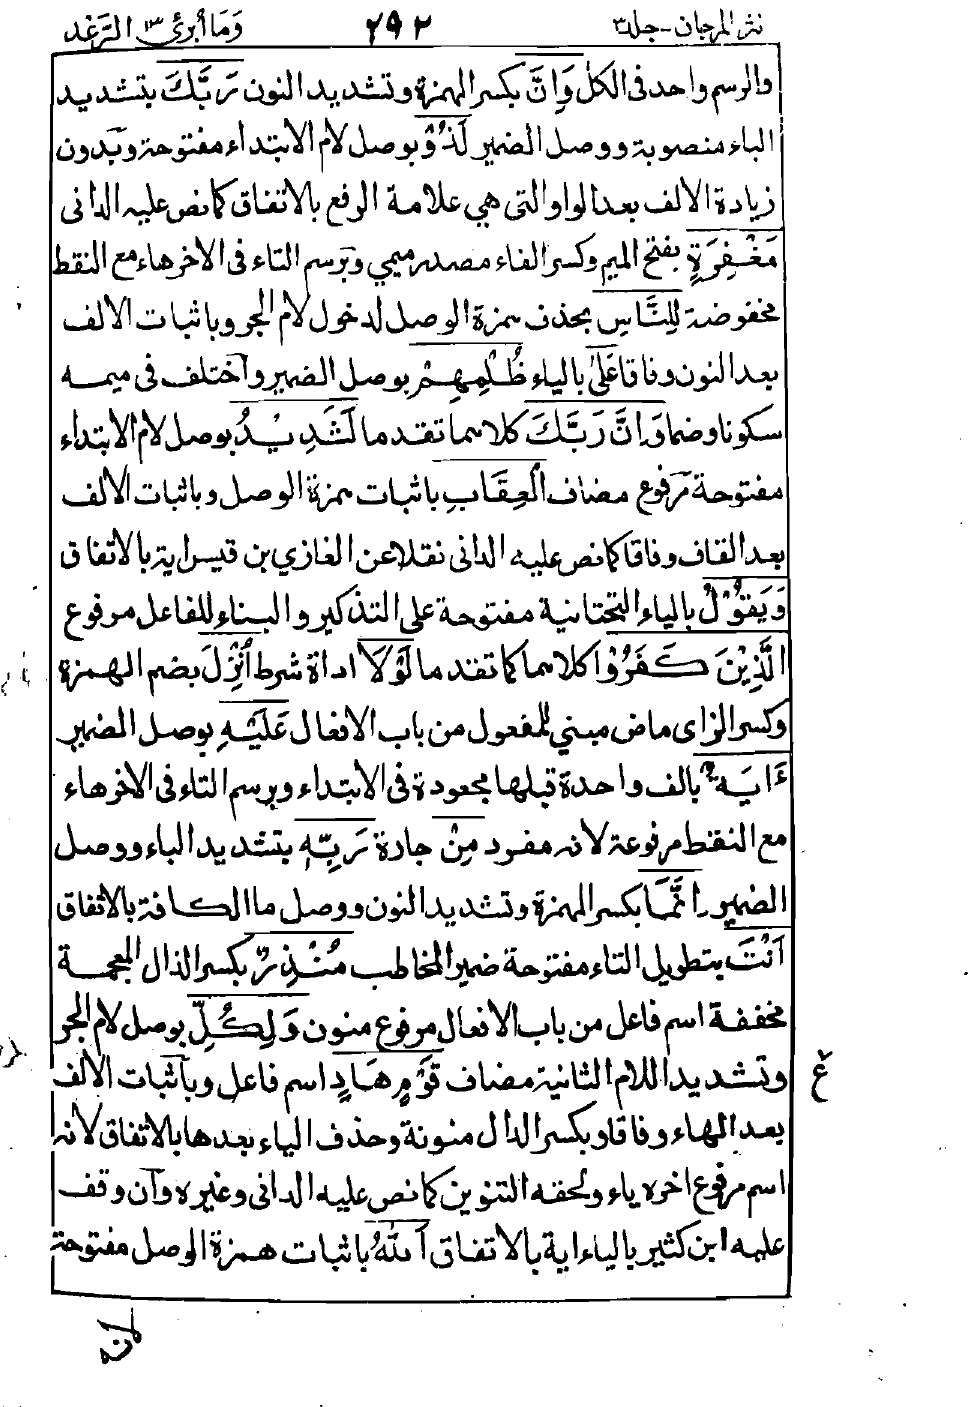 نثر المرجان - جلد ٣ ٢٩٢ وَمَا أبرئ ١٣ الرَّعْد
والرسم واحد فى الكل وَاِنَّ بكسر الهمزة وتشديد النون رَبَّكَ بتشديد
الباء منصوبة ووصل الضمير لَذُوْ بوصل لام الابتداء مفتوحة وبدون
زيادة الالف بعد الواو التى هي علامة الرفع بالاتفاق كما نص عليه الدانى
مَغْفِرَةٍ بفتح الميم وكسر الفاء مصدر ميمي وبرسم التاء فى الاخر هاء مع النقط
مخفوضة لِلنَّاسِ بحذف همزة الوصل لدخول لام الجر وباثبات الالف
بعد النون وفاقا عَلٰى بالياء ظُلْمِهِمْ بوصل الضمير واختلف فى ميمه
سكونا وضما وَاِنَّ رَبَّكَ كلاهما تقدما لَشَدِيْدُ بوصل لام الابتداء
مفتوحة مرفوع مضاف الْعِقَابِ باثبات همزة الوصل وباثبات الالف
بعد القاف وفاقا كما نص عليه الدانى نقلا عن الغازي بن قيس اية بالاتفاق
وَيَقُوْلُ بالياء التحتانية مفتوحة على التذكير والبناء للفاعل مرفوع
الَّذِيْنَ كَفَرُوْا كلاهما كما تقدما لَوْلَا اداة شرط اُنْزِلَ بضم الهمزة
وكسر الزاى ماض مبني للمفعول من باب الافعال عَلَيْهِ بوصل الضمير
ءَايَةٌ بالف واحدة قبلها مجعودة فى الابتداء وبرسم التاء فى الاخر هاء
مع النقط مرفوعة لانه مفرد مِنْ جارة رَبِّهٖ بتشديد الباء ووصل
الضمير اِنَّمَا بكسر الهمزة وتشديد النون ووصل ما الكافة بالاتفاق
اَنْتَ بتطويل التاء مفتوحة ضمير المخاطب مُنْذِرٌ بكسر الذال المعجمة
مخففة اسم فاعل من باب الافعال مرفوع منون وَلِكُلِّ بوصل لام الجر
وتشديد اللام الثانية مضاف قَوْمٍ هَادٍ اسم فاعل وباثبات الالف
بعد الهاء وفاقا وبكسر الدال منونة وحذف الياء بعدها بالاتفاق لانه
اسم مرفوع اخره ياء ولحقه التنوين كما نص عليه الدانى وغيره وان وقف
عليه ابن كثير بالياء اية بالاتفاق اَللّٰهُ باثبات همزة الوصل مفتوحة
ع
لانه